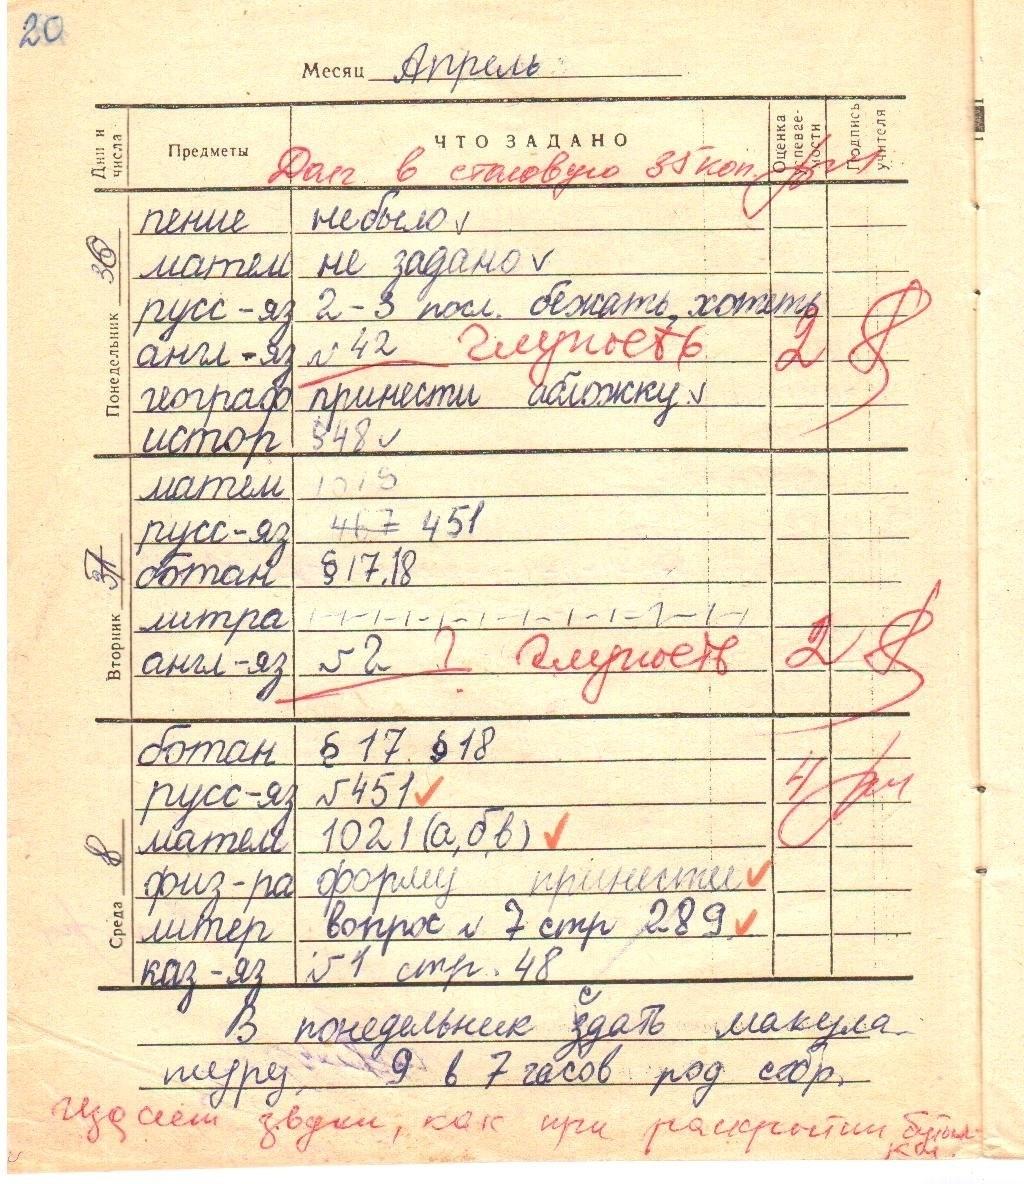 20
Месяц Апрель
Дни и числа Предметы ЧТО ЗАДАНО Оценка успеваемости Подпись учителя
Долг в столовую 35 коп.
Понедельник
пение небыло
матем не задано
русс-яз 2-3 посл. бежать, хотеть
англ-яз №42 Глупость 2
географ принести абложку
истор §48
Вторник
матем 1019
русс-яз 467 451
ботан § 17,18
литра
англ-яз №2 ? Глупость 2
Среда 8
ботан § 17. §18 4
русс-яз №451
матем 1021(а,б,в)
физ-ра форму принести
литер вопрос № 7 стр 289
каз-яз №1 стр. 48
В понедельник сдать макула-
туру, 9 в 7 часов род собр.
Издает звуки, как при раскрытии бутыл-
ки.